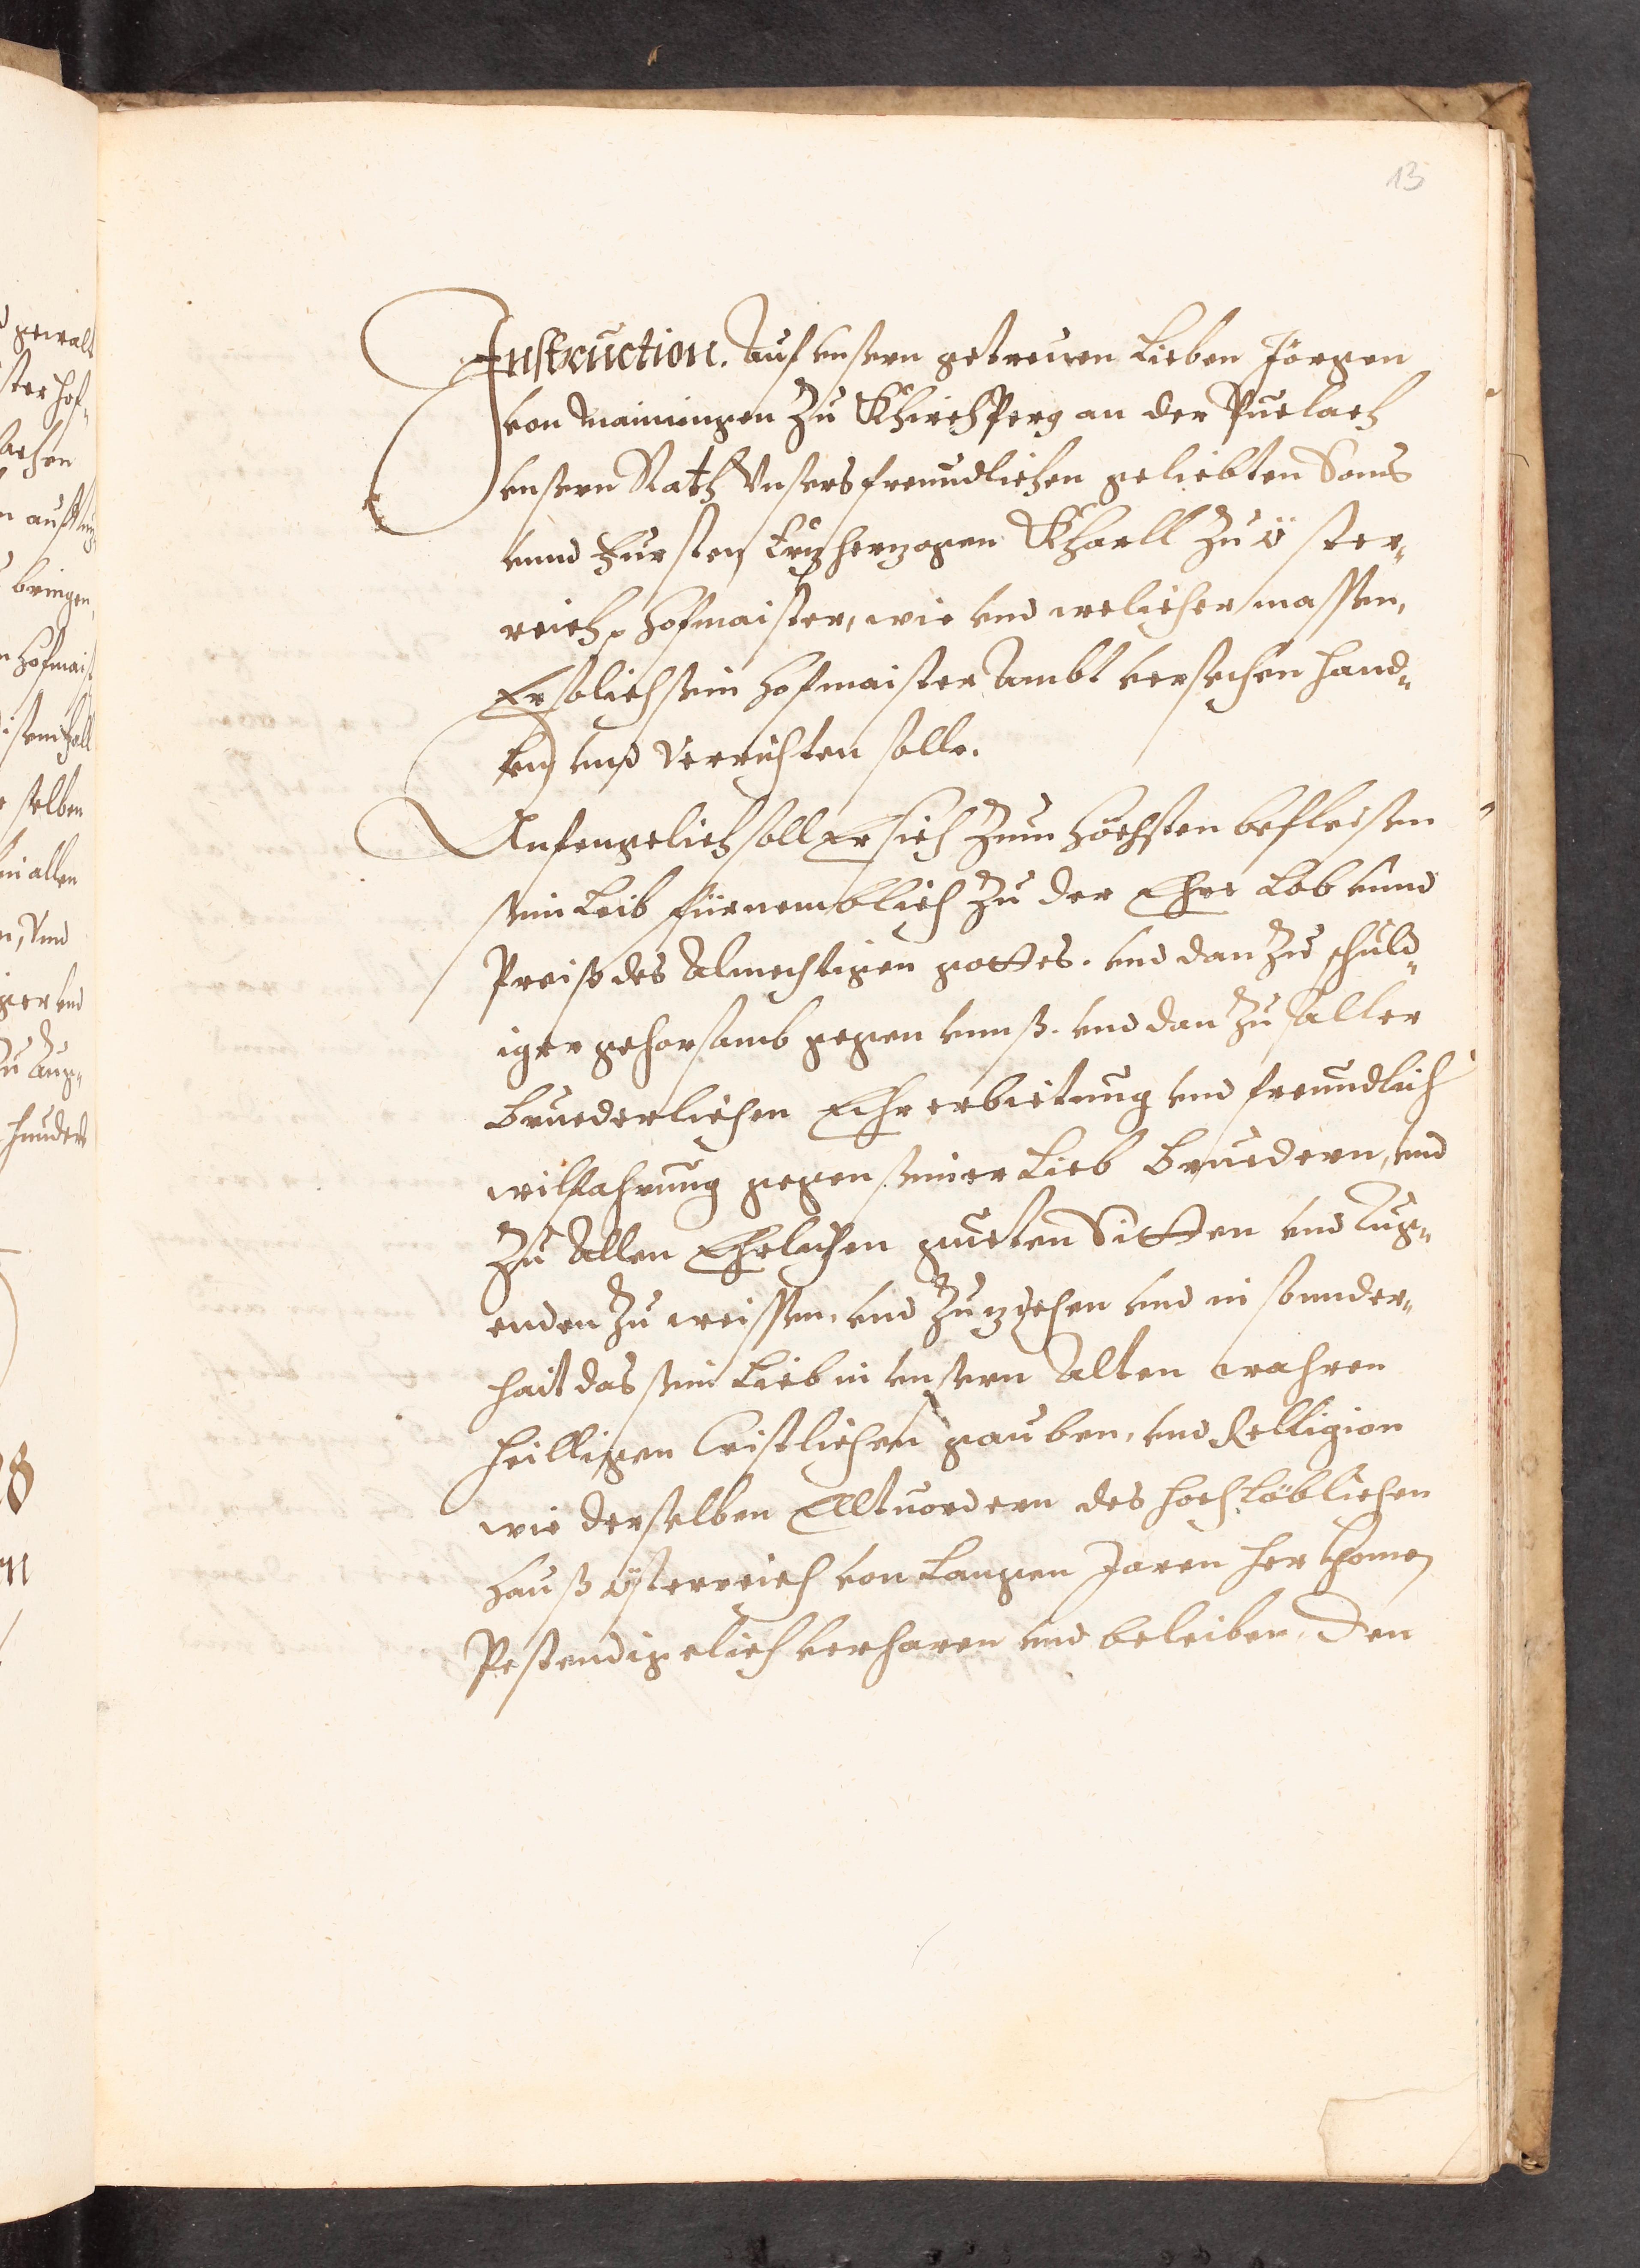 13
Instruction. Auf unsern getreuen Lieben Jörgen
von Mainingen Zu Khirchperg an der Puelach
unsern Rath Unsers freundlichen geliebten Sons
unnd Fursten Ertzhertzogen Kharll Zu Öster¬
reich, Hofmaister, wie und welicher massen,
Er solich sein Hofmaister Ambt versechen hand¬
len und Verrichten solle.
Anfengelich soll Er sich Zum höchsten befleissen
sein Leib fürnemblich Zu der Ehre Lob unnd
Preiß des Almechtigen gottes. und dan Zu schuld¬
iger gehorsamb gegen unnß. und dan Zu saller
bruederlichen Ehr erbietung und freundlich
wilfahrung gegen seiner Lieb Bruedern, und
Zu Allen Ehrlichen guetten Sitten und Tug¬
enden Zu weissen. und Zu ziechen und in sonnder¬
hait das sein Lieb in unsern Alten wahren
heilligen Cristlichen gauben, und Relligion
wie derselben Elltuordern des hochlöblichen
Hauß össterreich von Langen Jaren her khomen
Pestendigelich verharen und beleiben. Den